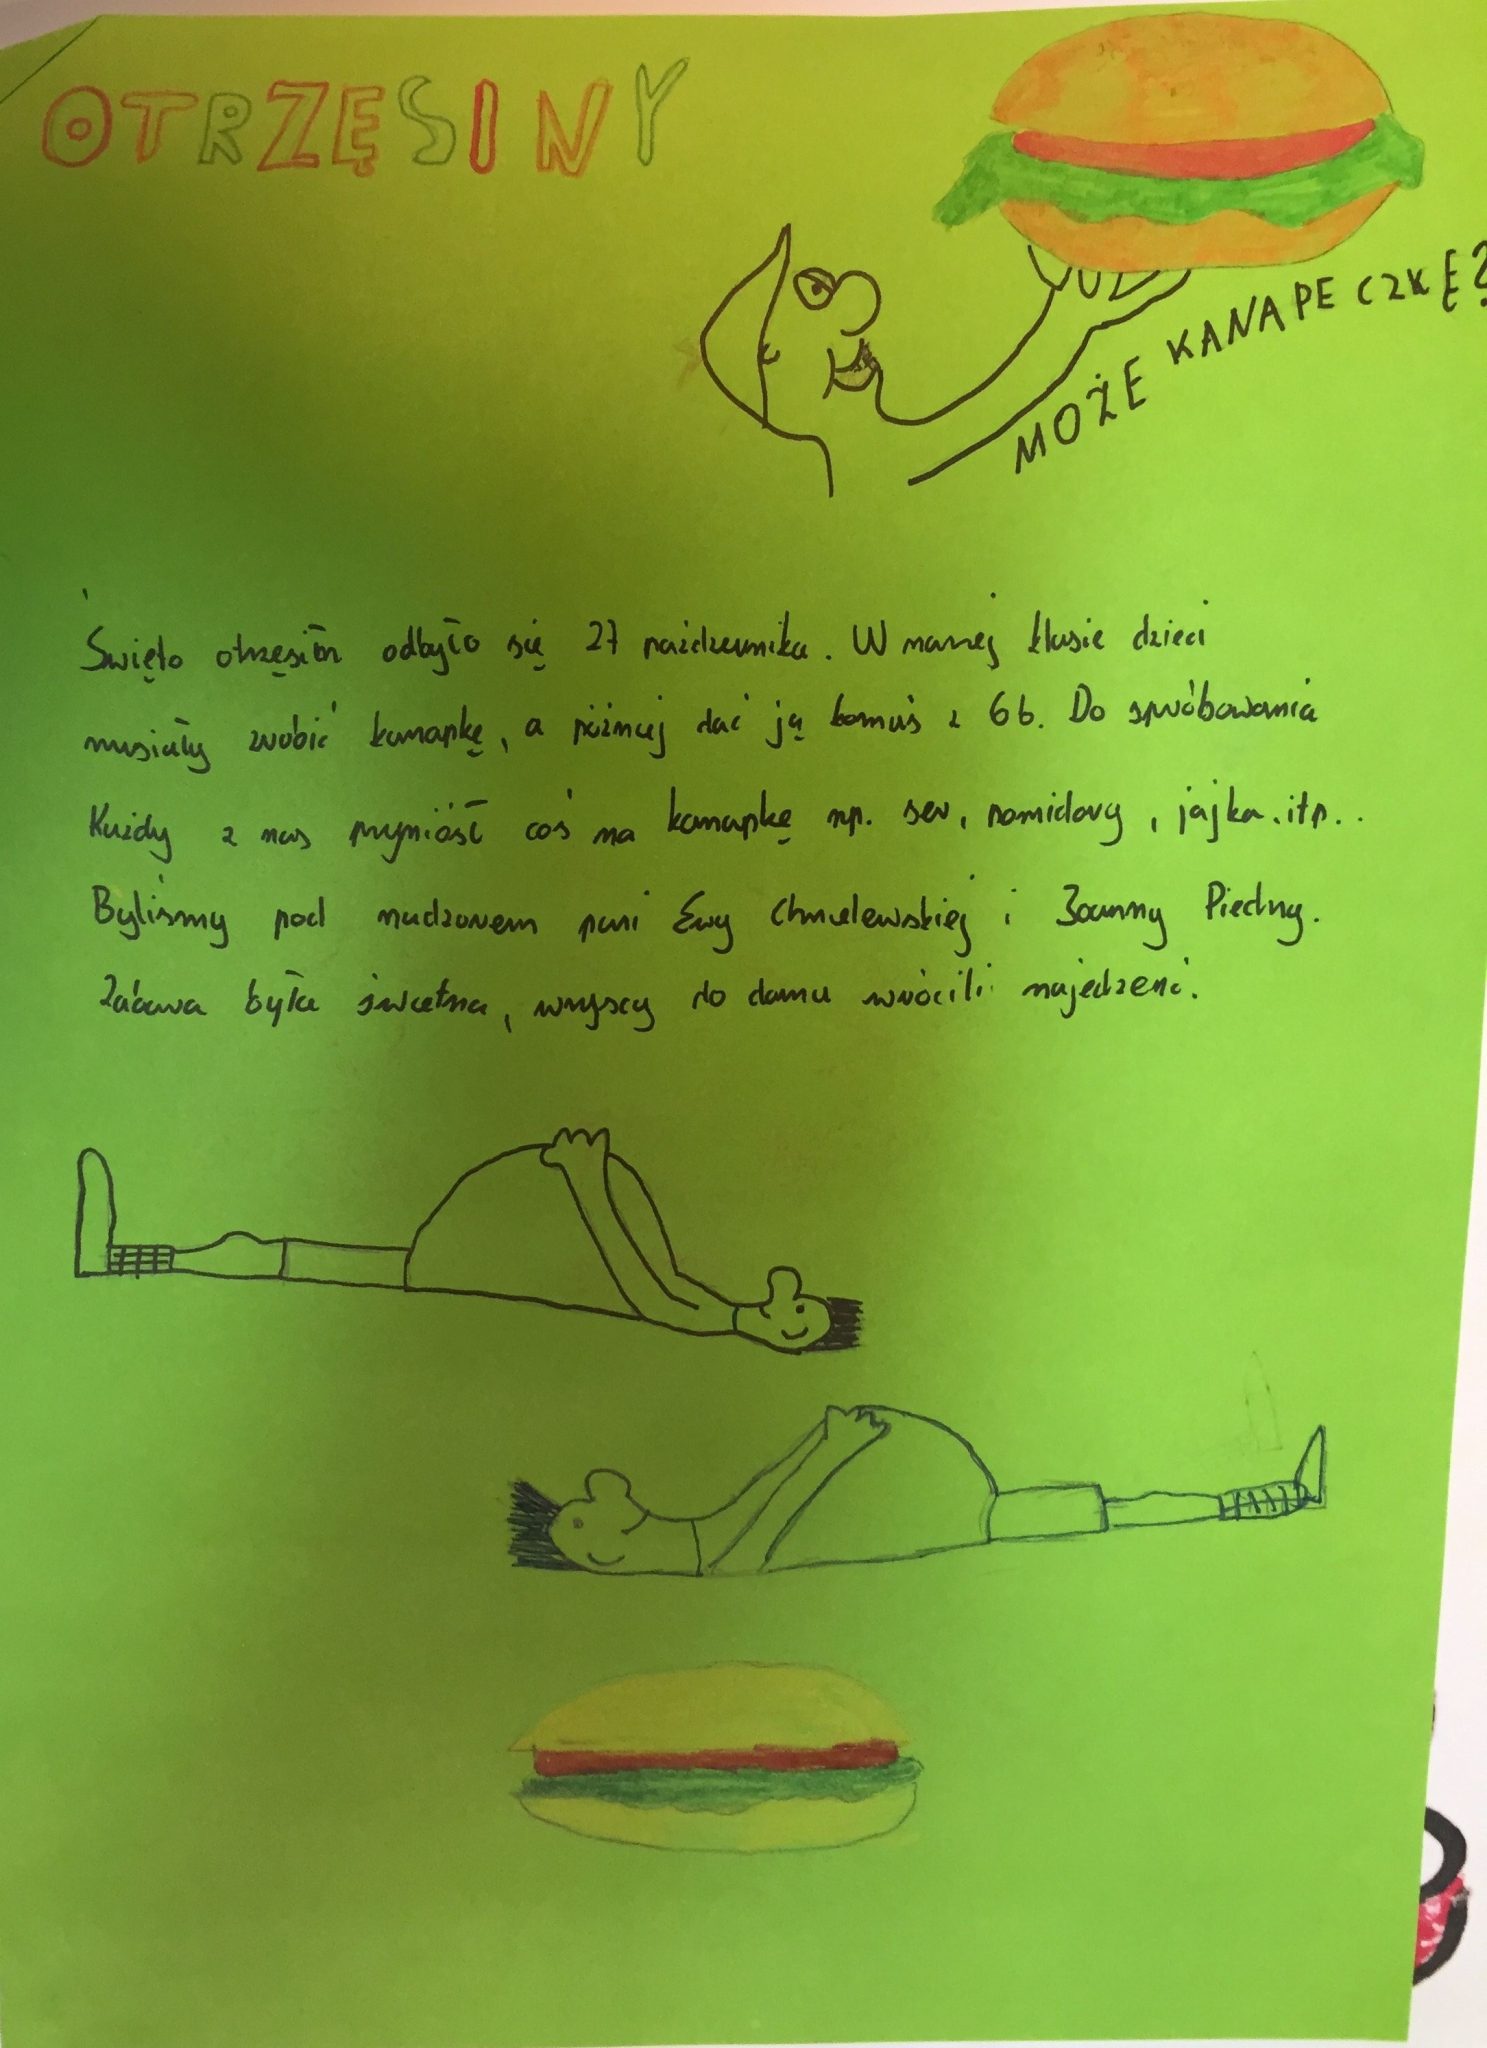 OTRZĘSINY
MOŻE KANAPECZKĘ?
Święto otrzęsin odbyło się 27 października. W naszej klasie dzieci
musiały zrobić kanapkę, a później dać ją komuś z 6b. Do spróbowania
Każdy z nas przyniósł coś na kanapkę np. ser, pomidory, jajka.itp..
Byliśmy pod nadzorem pani Ewy Chmielewskiej i Joanny
Zabawa była świetna, wszyscy do domu wrócili najedzeni.